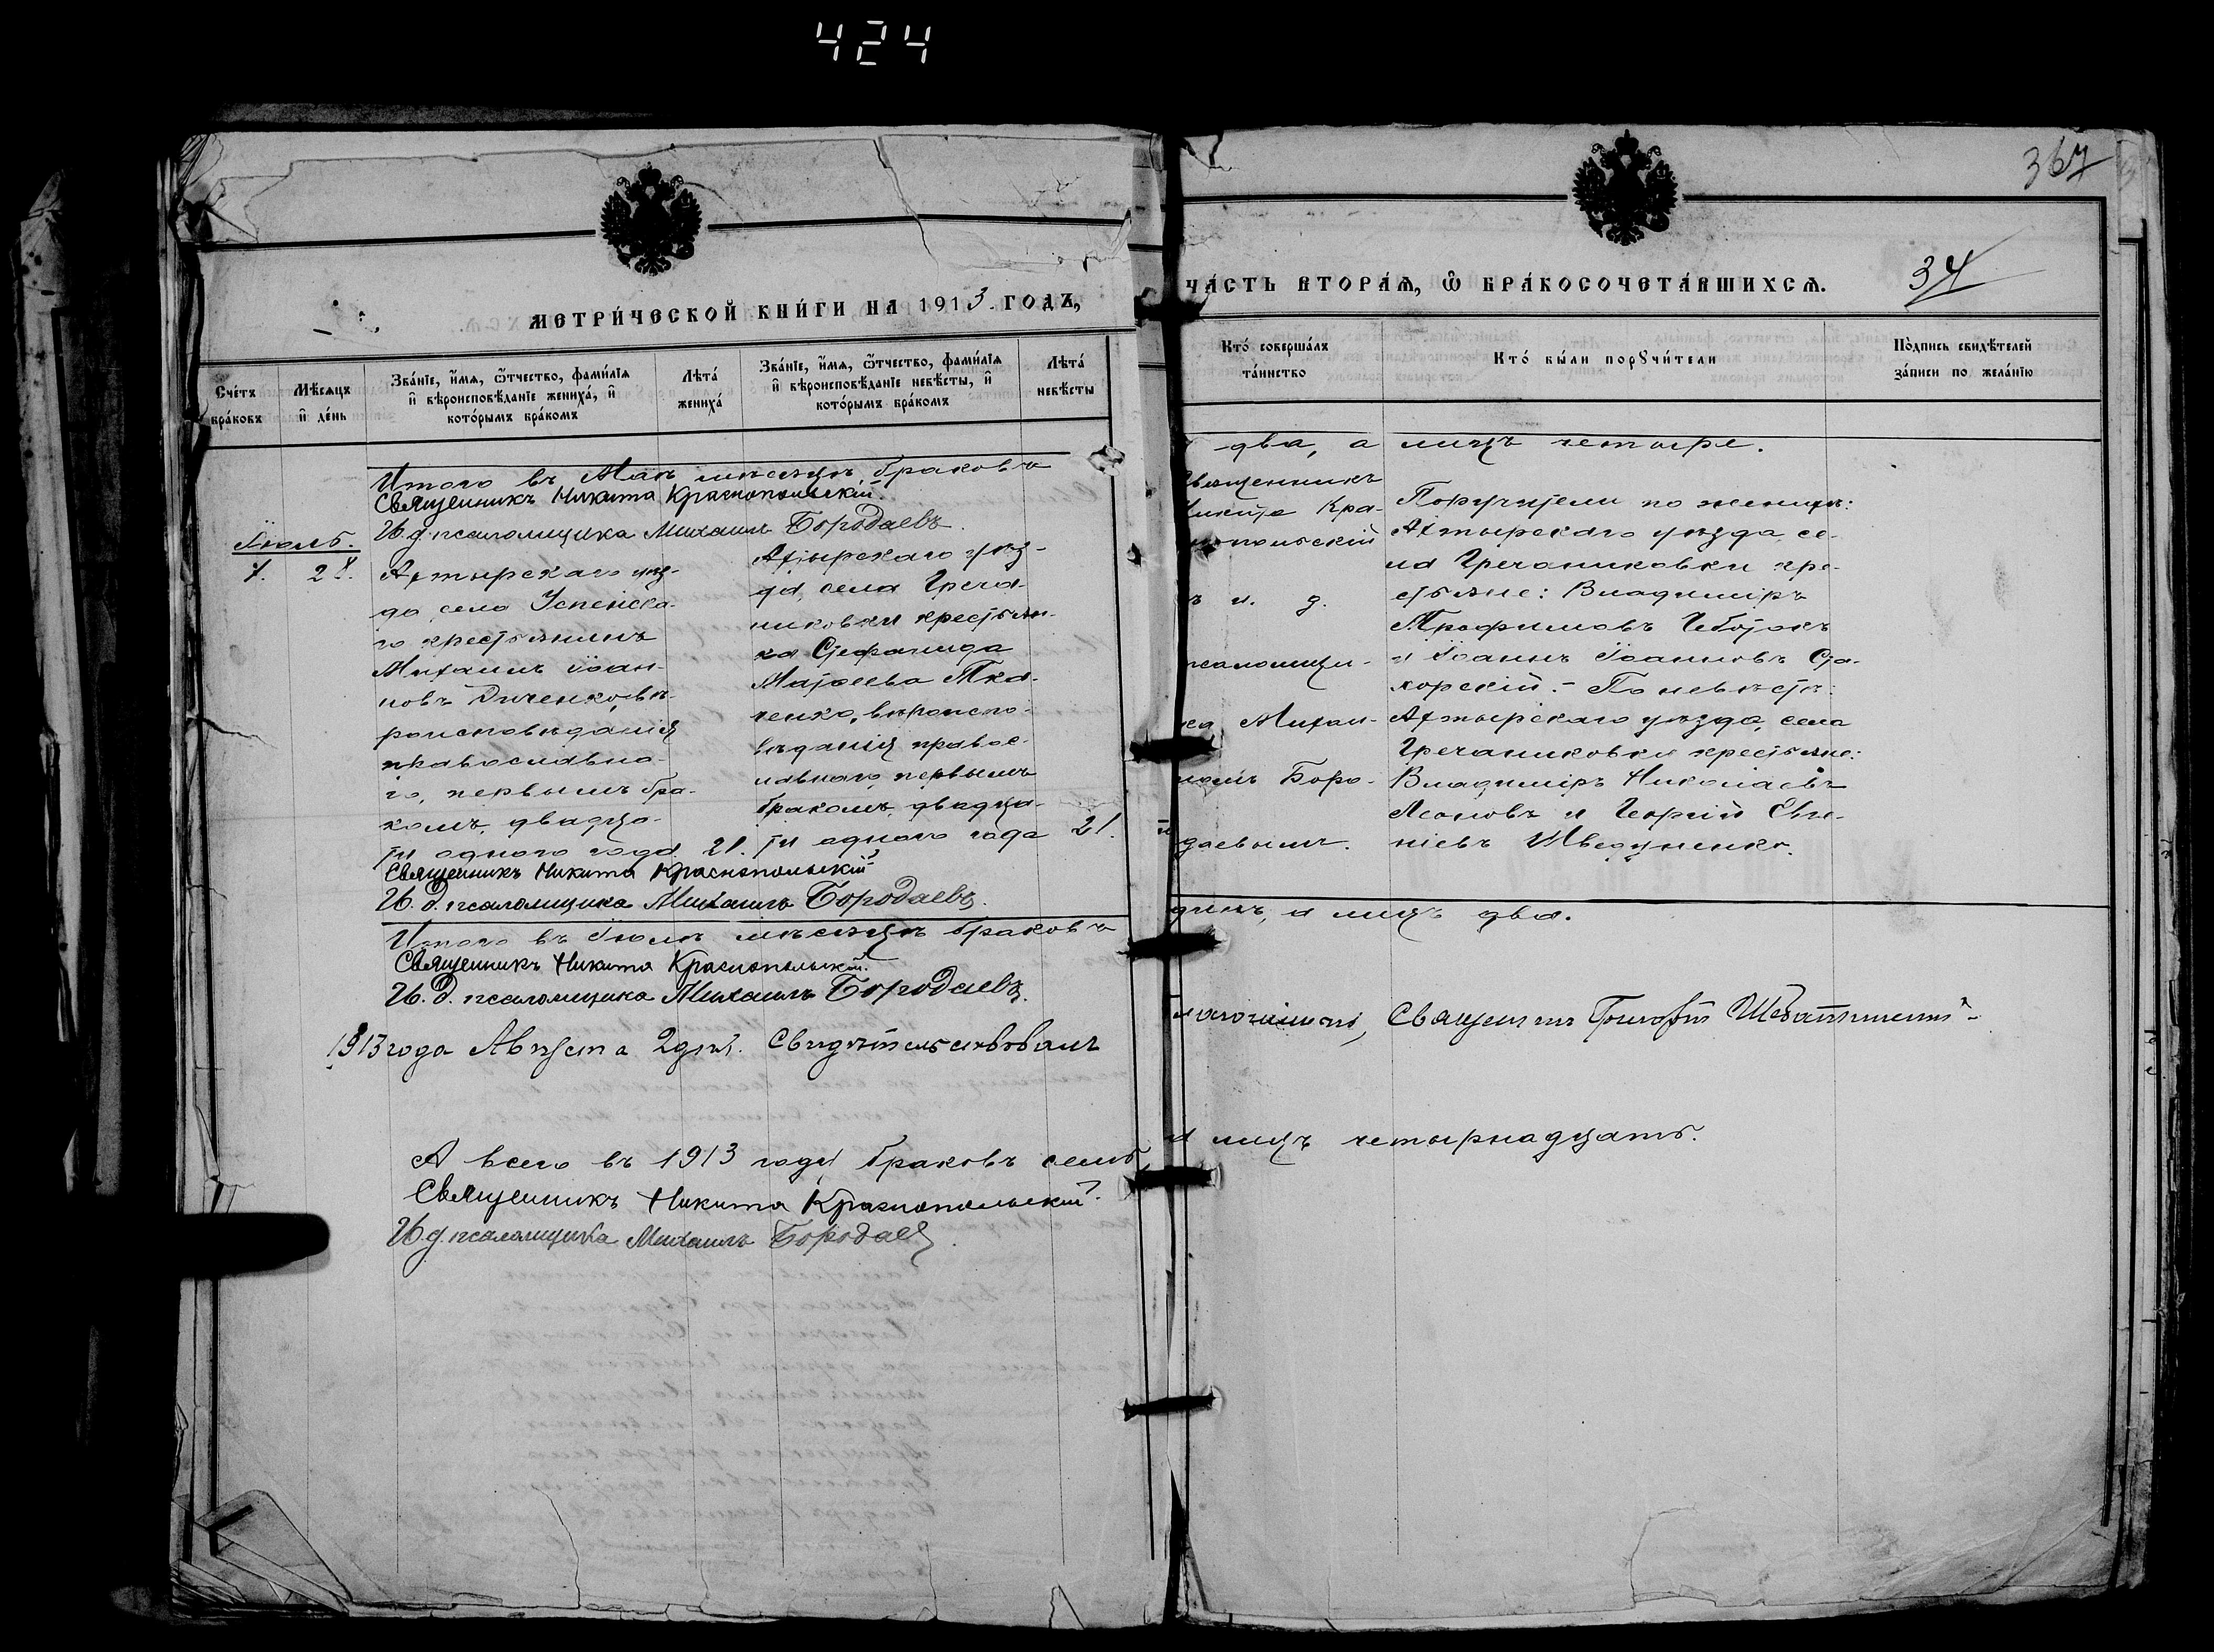 424
367
МЕТРИ́ЧЕСКОЙ КНИ́ГИ НА 1913. ГОДЪ,
ЧА́СТЬ ВТОРА́Ѧ, Ѽ БРА́КОСОЧЕТА́ВШИХСѦ.
34
Сче́тъ бра́ковъ
Мѣ́сѧцъ и҆ де́нь
Зва́нїе, и҆́мѧ, ѻ҆́тчество, фами́лїѧ и҆ вѣроисповѣ́данїе жениха́, и҆ кото́рымъ бра́комъ
Лѣта́ жениха́
Зва́нїе, и҆́мѧ, ѻ҆́тчество, фами́лїѧ и҆ вѣроисповѣ́данїе невѣ́сты, и҆ кото́рымъ бра́комъ
Лѣта́ невѣ́сты
Кто́ соверша́лъ та́инство
Кто́ бы́ли порꙋчи́тели
По́дпись свидѣ́телей за́писи по жела́нїю
Итого въ Маѣ мѣсяцѣ браковъ
два, а лицъ четыре.
Священникъ Никита Краснопольскій.
И. д. псаломщика Михаилъ Бородаевъ.
Іюль.
7. 28.
Ахтырскаго уѣз-
да, села Успенска-
го крестьянинъ
Михаилъ Іоан-
новъ Диченко, вѣ-
роисповѣданія
православна-
го, первымъ бра-
комъ, двадца-
ти одного года 21.
Ахтырскаго уѣз-
да, села Греча-
никовки крестьян-
ка Стефанида
Матѳеева Тка-
ченко, вѣроиспо-
вѣданія правос-
лавнаго, первымъ
бракомъ, двадца-
ти одного года 21.
Священникъ
Никита Кра-
снопольскій
съ и. д.
псаломщи-
ка Михаи-
ломъ Боро-
даевымъ.
Поручители по женихѣ:
Ахтырскаго уѣзда, се-
ла Гречаниковки кре-
стьяне: Владиміръ
Трофимовъ Чеботокъ
и Іоаннъ Іоанновъ Ста-
хорскій. – По невѣстѣ:
Ахтырскаго уѣзда, села
Гречаниковки крестьяне:
Владиміръ Николаевъ
Леоновъ и Георгій Евге-
ніевъ Шведуненко.
Священникъ Никита Краснопольскій
И. д. псаломщика Михаилъ Бородаевъ.
Итого въ Іюлѣ мѣсяцѣ браковъ
одинъ, а лицъ два.
Священникъ Никита Краснопольскій.
И. д. псаломщика Михаилъ Бородаевъ.
1913 года Августа 2 дня. Свидѣтельствовалъ
Священникъ
А всего въ 1913 году браковъ семь,
а лицъ четырнадцать.
Священникъ Никита Краснопольскій.
И. д. псаломщика Михаилъ Бородаевъ.